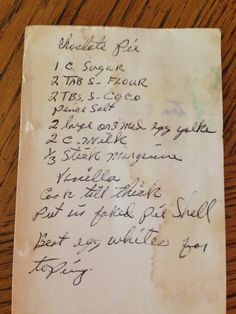 Choclate Pie
1 C. Sugar
2 TAB S- FLOUR
2 TBS. S- COCO
Pence Salt
2 large or 3 med egg yolke
2 C. Milk
1/3 Steek Margerine
Vinilla
Cook till thick
Put in baked pie Shell
Beat egg whites for
toping.